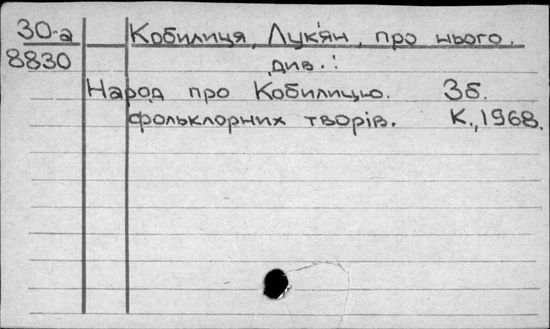 30-а Кобилиця, Лук'ян, про нього.
8830 див.:
Народ про Кобилицю. Зб.
фольклорних творів. К., 1968.